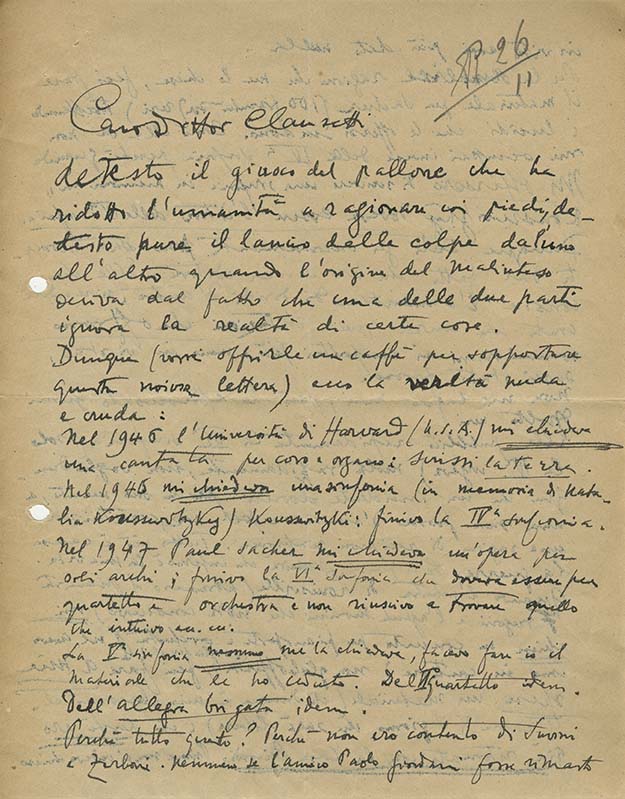 R 26
11
Caro Dottor Clausetti
detesto il giuoco del pallone che ha
ridotto l'umanità a ragionare coi piedi, de-
testo pure il lancio delle colpe dall'uno
all'altro quando l'origine del malinteso
deriva dal fatto che una delle due parti
ignora la realtà di certe cose.
Dunque (vorrei offrirle un caffè per sopportare
questa noiosa lettera) ecco la verità nuda
e cruda:
Nel 1946 l'Università di Harvard (U.S.A.) mi chiedeva
una cantata per coro e organo: scrissi la terra.
Nel 1946 mi chiedeva una sinfonia (in memoria di Nata-
lia Koussewitzky) Koussewitzki: finivo la IVa sinfonia.
Nel 1947 Paul Sacher mi chiedeva un'opera per
soli archi; finivo la VIa sinfonia che doveva essere per
quartetto e orchestra e non riuscivo a trovare quello
che intuivo ecc. ecc.
La Va sinfonia nessuno me la chiedeva, facevo fare io il
materiale che le ho ceduto. Del II quartetto idem.
Dell'allegra brigata idem.
Perchè tutto questo? Perchè non ero contento di Suvini
e Zerboni. Nemmeno se l'amico Paolo Giordani fosse rimasto